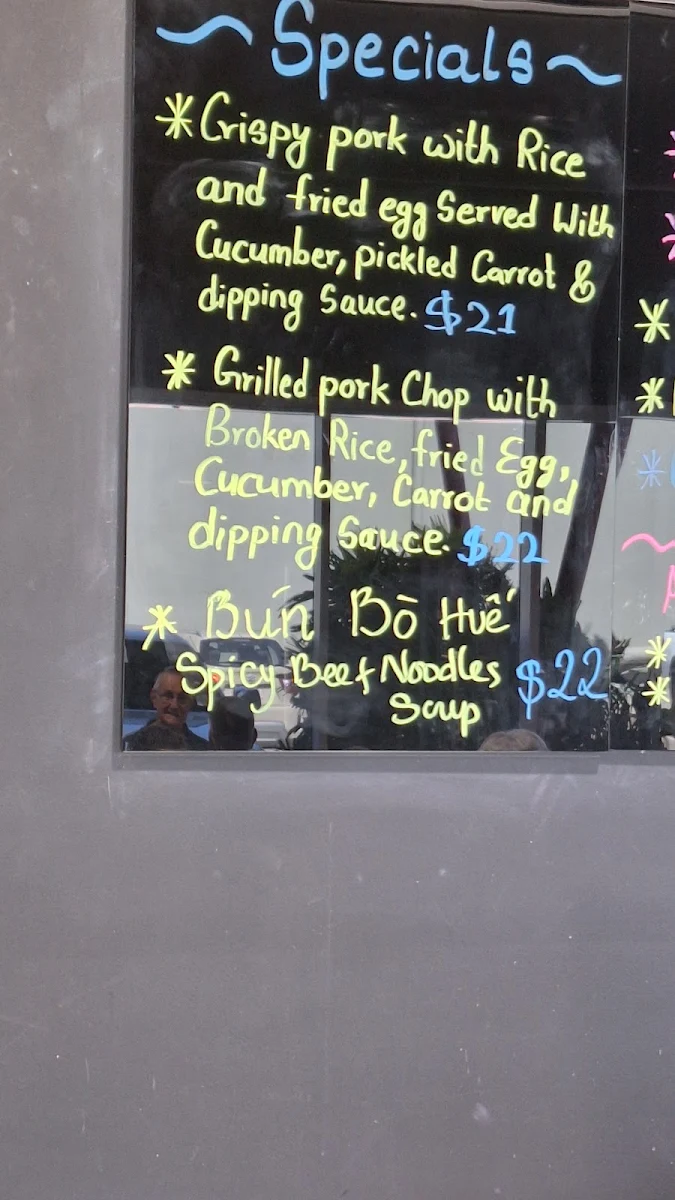 ~ Specials ~
* Crispy pork with Rice
and fried egg Served With
Cucumber, pickled Carrot &
dipping Sauce. $21
* Grilled pork Chop with
Broken Rice, fried Egg,
Cucumber, Carrot and
dipping Sauce. $22
* Bún Bò Huế
Spicy Beef Noodles $22
Soup